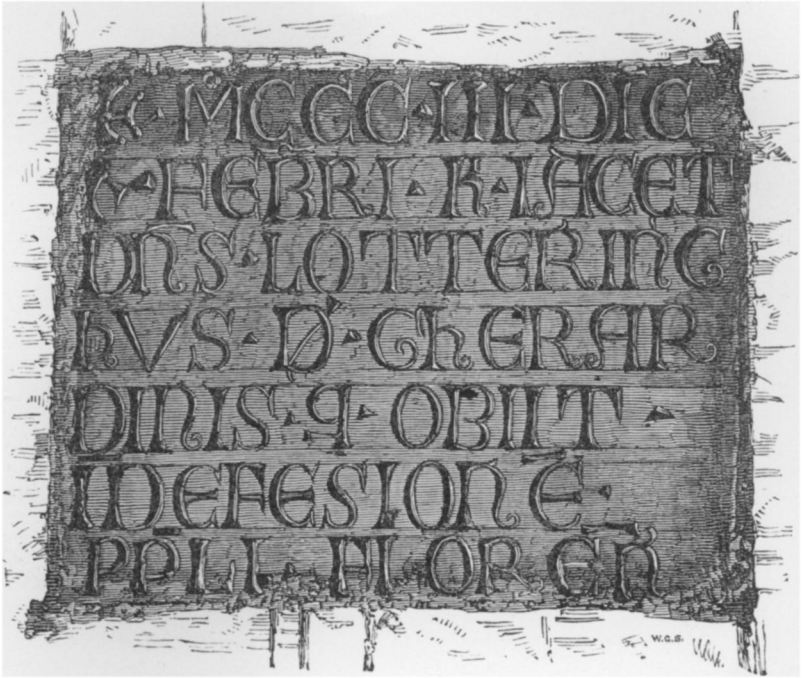 MCCC · III · DIC
FEBRI · K · IACET
DNS · LOTTERING
hVS · D · GhERAR
DINIS · q · OBIIT ·
IDEFESIONE ·
PPLI FLOREN
W.G.S.